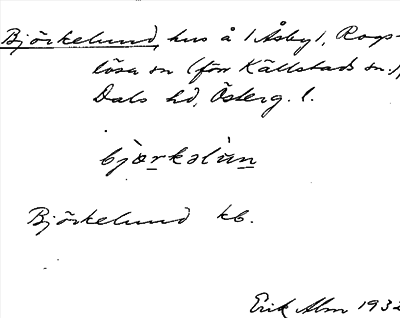 Björkelund, hus å 1 Åsby 1, Rogs-
lösa sn (förr Källstads sn.),
Dals hd, Österg. l.
bjœrkəlùn
Björkelund kb.
Erik Alm 1932